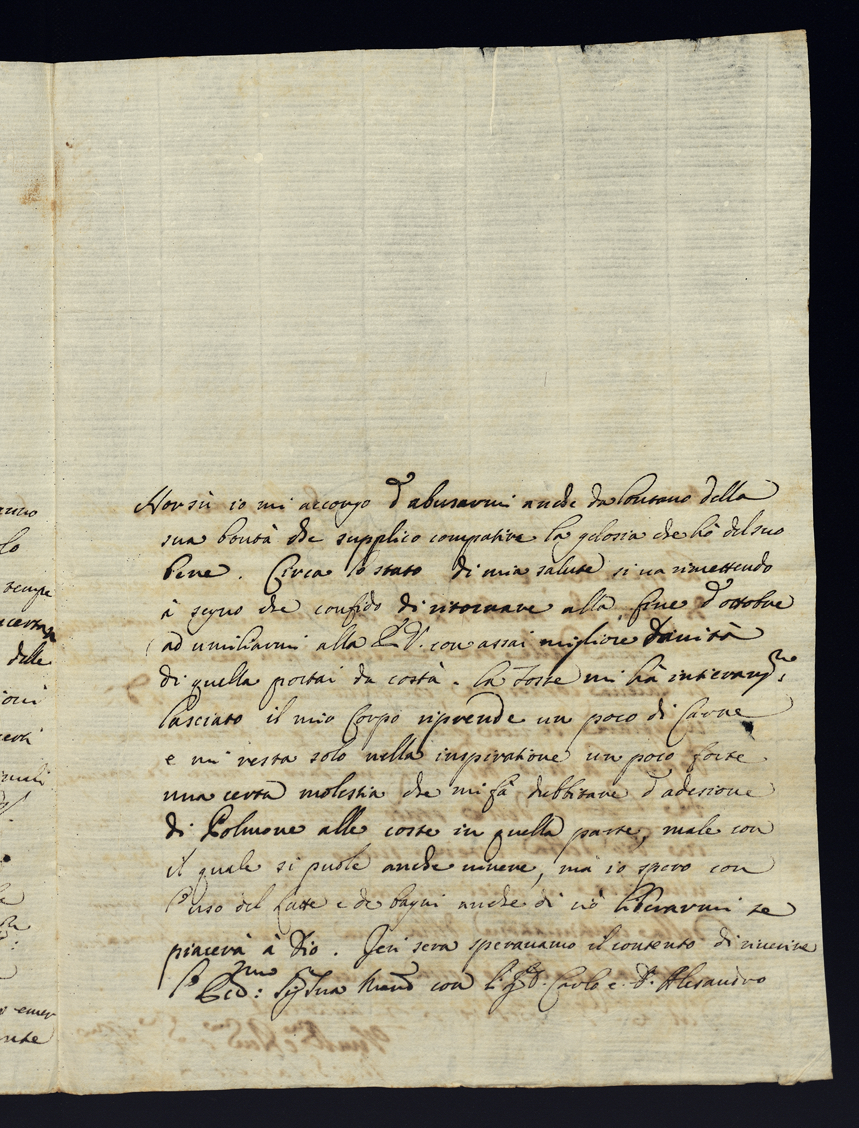 anno
lo
delle
ioni
Horsù io mi accorgo d'abusarmi anche da lontano della
sua bontà che supplico compatire la gelosia che hò del suo
bene. Circa lo stato di mia salute si va rimettendo
à segno che confido di ritornare alla fine d'ottobre
ad umiliarmi alla P.V. con assai migliore sanità
di quella portai da costà. La tosse mi hà
lasciato il mio Corpo riprende un poco di Carne
e mi resta solo nella inspiratione un poco forte
una certa molestia che mi fà dubbitare d'adesione
di Polmone alle coste in quella parte, male con
il quale si puole anche vivere, mà io spero con
l'uso del latte e de bagni anche di ciò liberarmi se
piacerà à Dio. Jeri sera speravamo il contento di riverire
con li Carlo e D. Alesandro